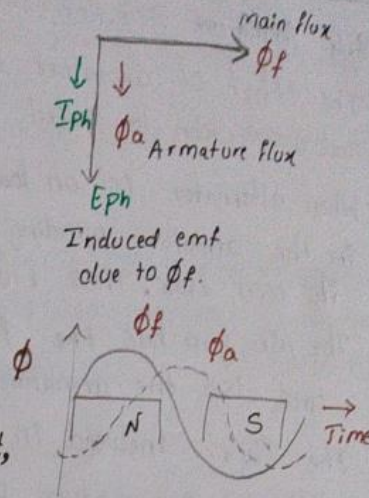 main flux
ϕf
Iph
ϕa Armature flux
Eph
Induced emf
due to ϕf.
ϕf
ϕa
ϕ
N
S
Time